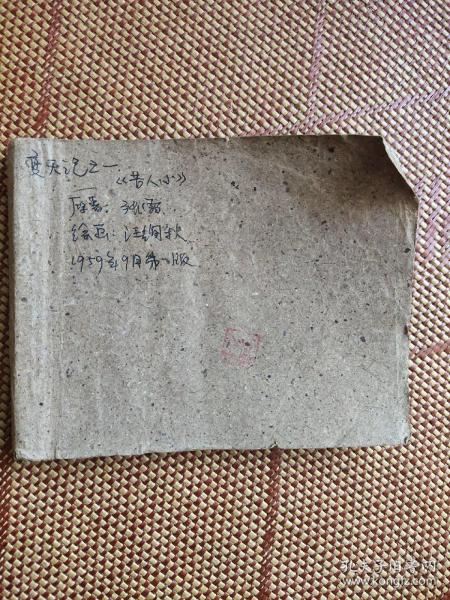 变天记之一
《苦人心》
原著：张雷
绘画：汪绚秋
1959年9月第1版
孔夫子旧书网
www.kongfz.com